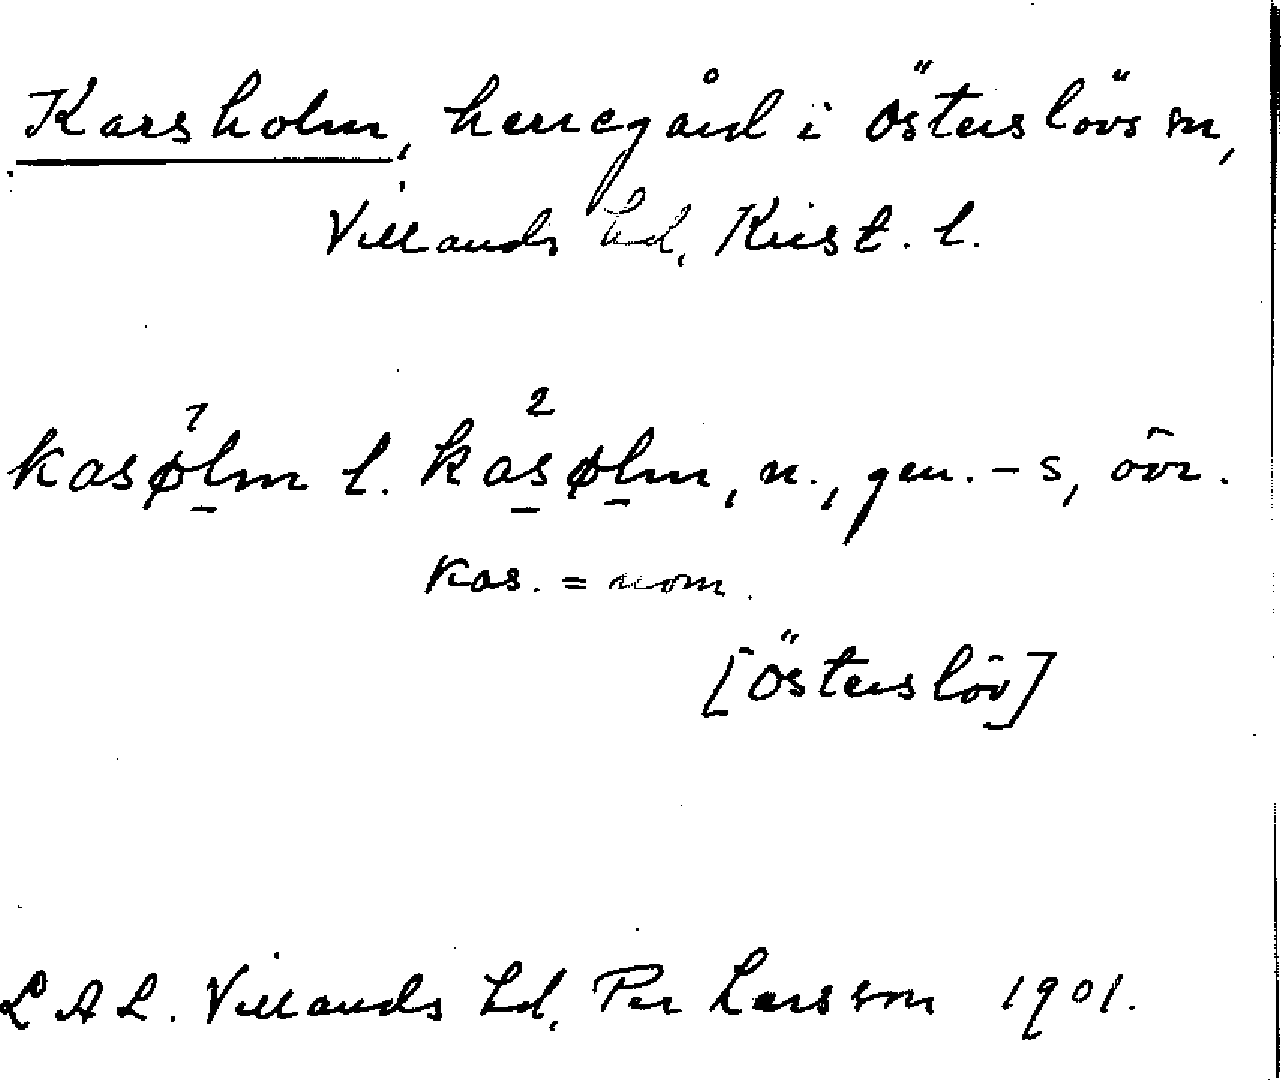 Karsholm, herregård i Österslövs sn,
Villands hd, Krist. l.
kasø̱lm l. ka̱sø̱lm, n., gen. -s, övr.
kas. = nom.
[Österslöv]
LAL. Villands hd, Per Larsson 1901.